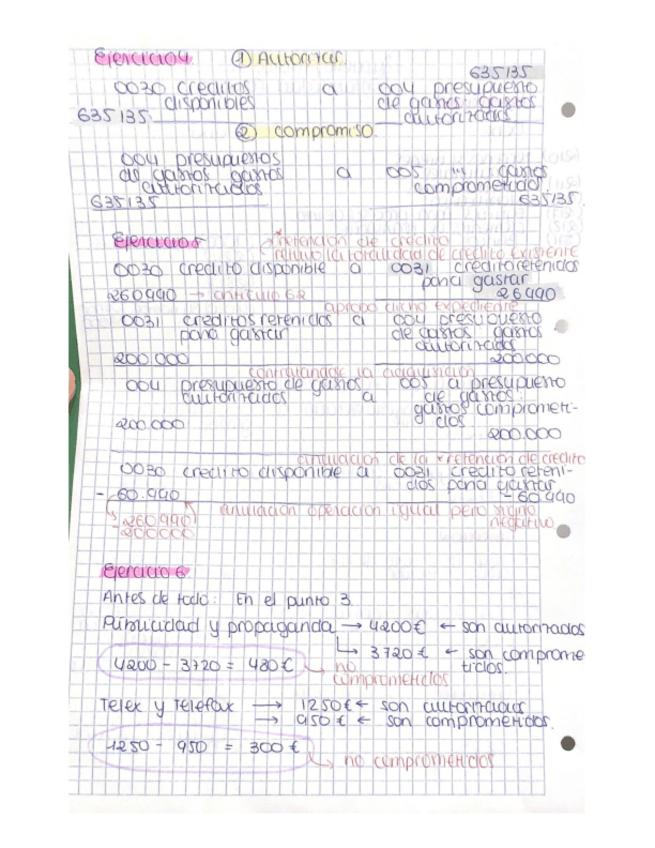 Ejercicio 4. ① Autorizar.
635135
0030 creditos a 004 presupuesto
disponibles de gastos: gastos
635135. autorizados.
② compromiso.
004 presupuestos
de gastos gastos a 005 "" gastos
autorizados comprometidos.
635135 635135.
Ejercicio 5 *retención de crédito
retuvo la totalidad de credito existente
0030 credito disponible a 0031 credito retenidos
para gastar
260990 → articulo 62 26990
aprobo dicho expediente
0031 creditos retenidos a 004 presupuesto
para gastar de gastos gastos
autorizados
200.000 200.000
contratandose la adquisición
004 presupuesto de gastos 005 a presupuesto
autorizados a de gastos:
gastos comprometi-
200.000 dos
200.000
anulación de la * retención de credito
0030 credito disponible a 0031 credito reteni-
dos para gastar
- 60.990 - 60.990
-260.990 anulación operación igual pero signo
200000 negativo
Ejercicio 6
Antes de todo: En el punto 3
Publicidad y propaganda → 4200€ ← son autorizados
↳ 3720 € ← son comprome
4200 - 3720 = 480 € → no tidos.
comprometidos
Telex y Telefax → 1250€ ← son autorizados
→ 950 € ← son comprometidos.
1250 - 950 = 300 €
↳ no comprometidos